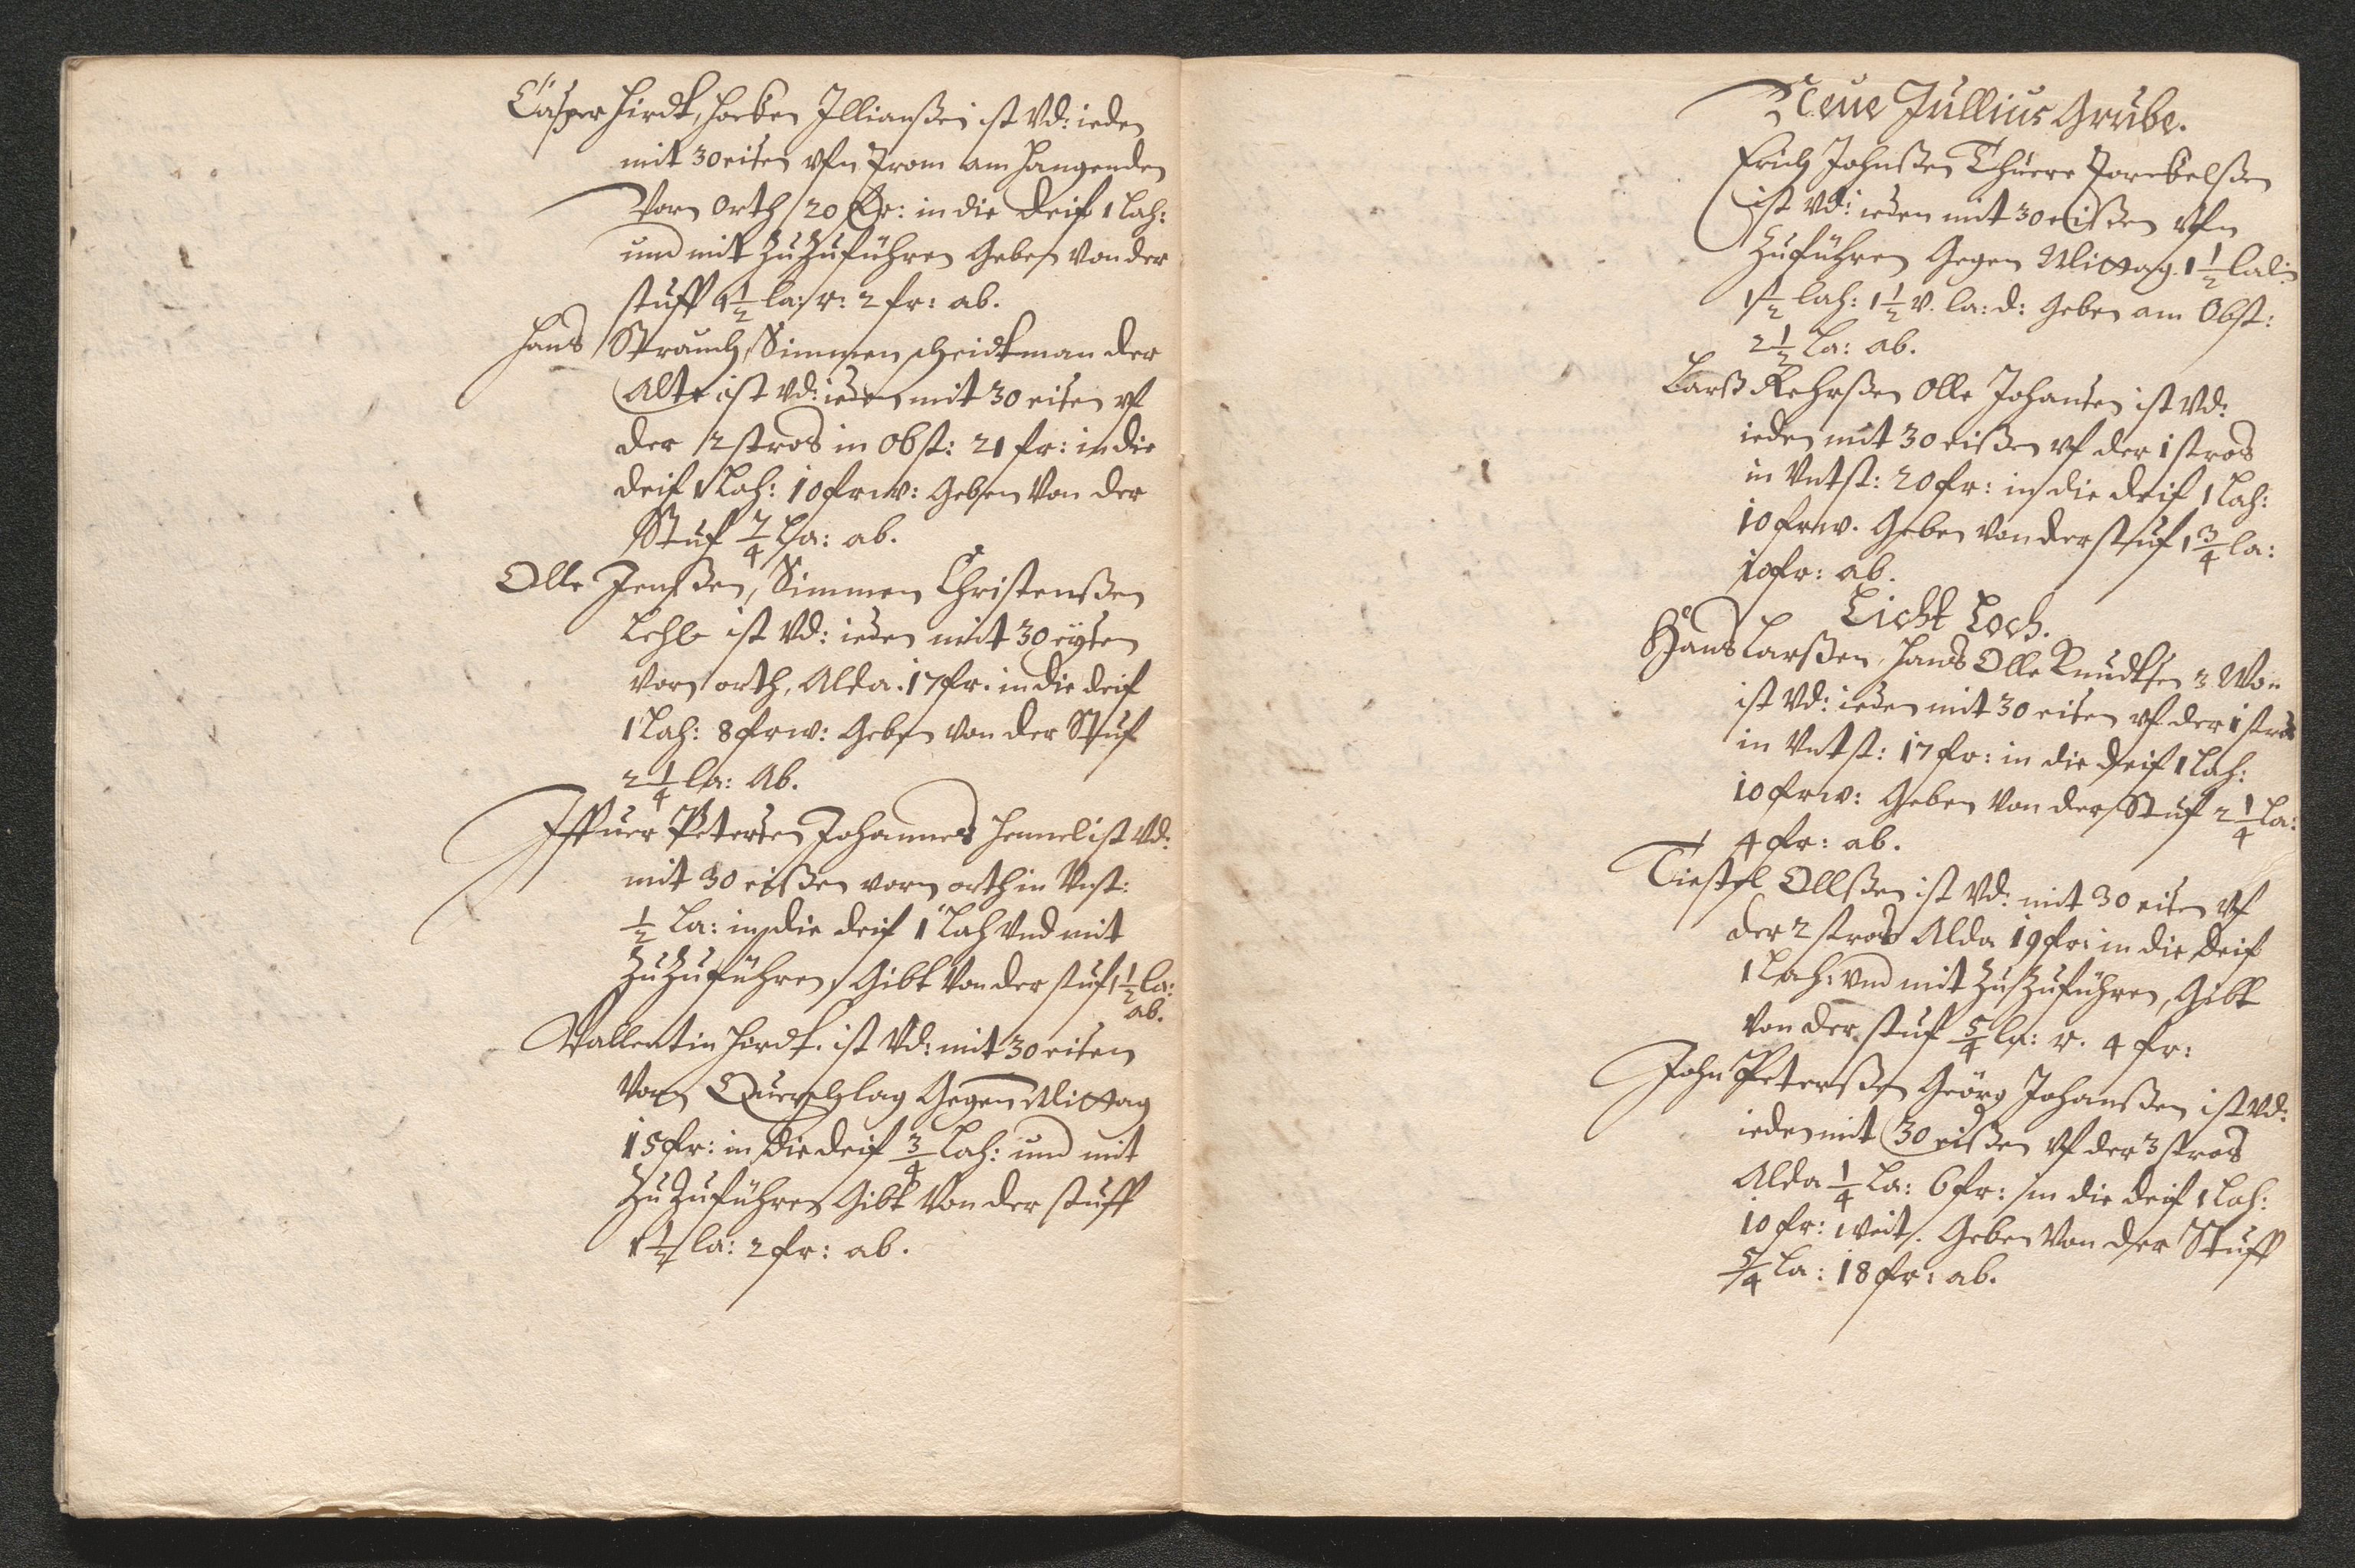 Casper Hirdt, Hocken Jllianßen ist Vd: ieden
mit 30 eisen vfn From am Hangenden
Vorn Orth 20 fr: in die deif 1 Lah:
und mit ZuZuführen Geben von der
stuff 4 1/2 la: r: 2 fr: ab.
Hans Strauch, Simmen scheidtman der
Alte ist Vd: ieden mit 30 eisen vf
der 2 stros in Obst: 21 fr: in die
deif 1 Lah: 10 fr w: Geben Von der
Stuf 7/4 La: ab.
Olle Jenßen, Simmen Christenßen
Lehle ist Vd: ieden mit 30 eysen
vorn orth, Alda. 17 fr. in die deif
1 Lah: 8 fr w: Geben von der Stuf
2 1/4 la: Ab.
Iffuer Petersen Johannes Hennel ist Vd:
mit 30 eißen vorn orth in Vnst:
1/2 La: in die deif 1 Lah Vnd mit
ZuZuführen, Gibt Von der stuf 1 1/2 la:
ab.
Vallentin Hirdt. ist Vd: mit 30 eisen
Vorn Querschlag Gegen Mittag
15 fr: in die deif 3/4 Lah: und mit
ZuZuführen Gibt Von der stuff
1 1/2 la: 2 fr: ab.
Neue Jullius Grube.
Erich Johnßen Thuere Torckelßen
ist Vd: ieden mit 30 eißen vfn
Zuführen Gegen Mittag. 1 1/2 lah:
1 1/2 lah: 1 1/2 v. la: d: Geben am Obst:
2 1/2 La: ab.
Larß Rehrßen Olle Johansen ist Vd:
ieden mit 30 eißen vf der 1 stros
in Vntst: 20 fr: in die deif 1 Lah:
10 fr w. Geben von der stuf 1 3/4 la:
10 fr: ab.
Licht Loch.
Hans Larßen, Hans Olle Knudtsen 3. Von
ist Vd: ieden mit 30 eisen vf der 1 stros
in Vntst: 17 fr: in die deif 1 Lah:
10 fr w: Geben Von der Stuf 2 1/4 La:
4 fr: ab.
Tiestel Ollßen ist Vd: mit 30 eisen Vf
der 2 stros Alda 19 fr: in die deif
1 Lah: vnd mit ZuZuführen, Gibt
Von der stuf 5/4 la: r. 4 fr:
John Peterßen Geörg Johanßen ist Vd:
ieden mit 30 eißen Vf der 3 stros
Alda 1/4 La: 6 fr: in die deif 1 Lah:
10 fr: weit. Geben Von der Stuff
5/4 La: 18 fr: ab.